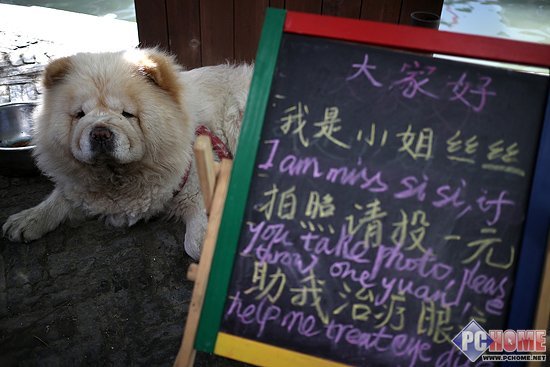 大家好
我是小姐丝丝
I am miss si si, if
拍照请投一元
you take photo, pleas
throw one yuan,
助我治疗眼
help me treat eye
PCHOME
WWW.PCHOME.NET